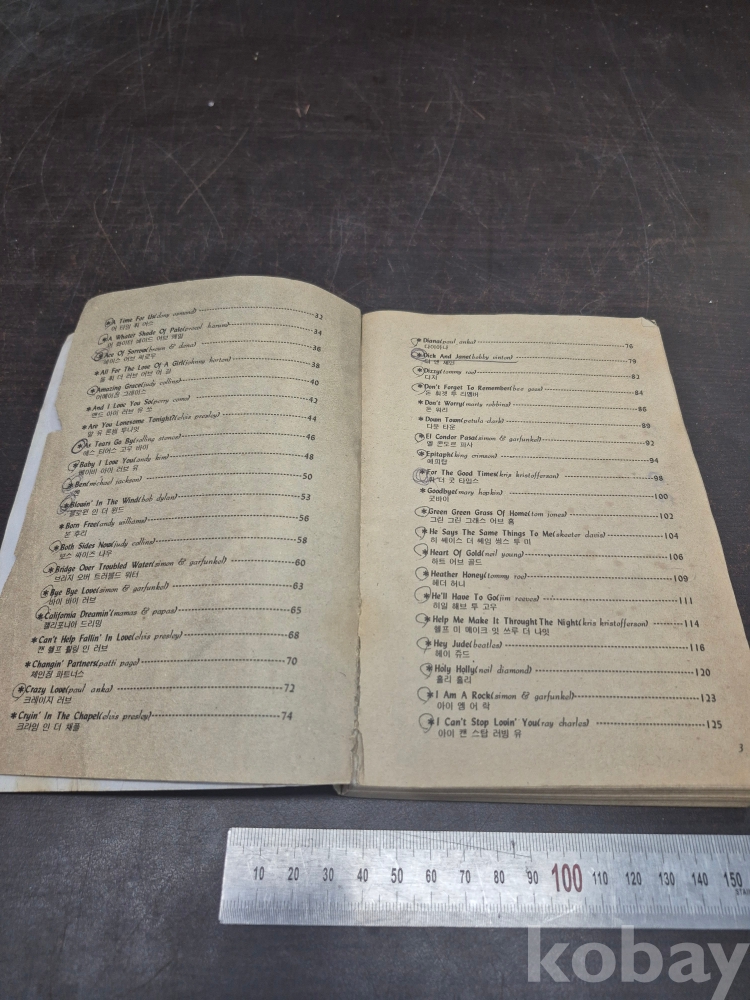 *A Time For Us(dony osmond) 32
어 타임 훠 어스
*A Whater Shade Of Pale(procol harum) 34
어 화이타 쉐이드 어브 페일
*Ace Of Sorrow(brown & dana) 36
에이스 어브 써로우
*All For The Love Of A Girl(johnny horton) 38
올 훠 더 러브 어브 어 걸
*Amazing Grace(judy collins) 40
어메이징 그레이스
*And I Love You So(perry como) 42
앤드 아이 러브 유 쏘
*Are You Lonesome Tonight?(elvis presley) 44
알 유 론썸 투나잇
*As Tears Go By(rolling stones) 46
애스 티어스 고우 바이
*Baby I Love You(andy kim) 48
베이비 아이 러브 유
*Ben(michael jackson) 50
벤
*Blowin' In The Wind(bob dylan) 53
블로윈 인 더 윈드
*Born Free(andy williams) 56
본 후리
*Both Sides Now(judy collins) 58
보스 싸이즈 나우
*Bridge Over Troubled Water(simon & garfunkel) 60
브리지 오버 트러블드 워터
*Bye Bye Love(simon & garfunkel) 63
바이 바이 러브
*California Dreamin'(mamas & papas) 65
캘리포니아 드리밍
*Can't Help Fallin' In Love(elvis presley) 68
캔 헬프 훨링 인 러브
*Changin' Partners(patti page) 70
체인징 파트너스
*Crazy Love(paul anka) 72
크레이지 러브
*Cryin' In The Chapel(elvis presley) 74
크라잉 인 더 채플
*Diana(paul anka) 76
다이아나
*Dick And Jane(bobby vinton) 79
딕 앤 제인
*Dizzy(tommy roe) 82
디지
*Don't Forget To Remember(bee gees) 84
돈 훠겟 투 리멤버
*Don't Worry(marty robbins) 86
돈 워리
*Down Town(petula clark) 89
다운 타운
*El Condor Pasa(simon & garfunkel) 92
엘 콘도르 파사
*Epitaph(king crimson) 94
에피탑
*For The Good Times(kris kristofferson) 98
훠 더 굿 타임스
*Goodbye(mary hopkin) 100
굿바이
*Green Green Grass Of Home(tom jones) 102
그린 그린 그래스 어브 홈
*He Says The Same Things To Me(skeeter davis) 104
히 쎄이스 더 쎄임 씽스 투 미
*Heart Of Gold(neil young) 106
하트 어브 골드
*Heather Honey(tommy roe) 109
헤더 허니
*He'll Have To Go(jim reeves) 111
히일 해브 투 고우
*Help Me Make It Throught The Night(kris kristofferson) 114
헬프 미 메이크 잇 쓰루 더 나잇
*Hey Jude(beatles) 116
헤이 쥬드
*Holy Holly(neil diamond) 120
홀리 홀리
*I Am A Rock(simon & garfunkel) 123
아이 엠 어 락
*I Can't Stop Lovin' You(ray charles) 125
아이 캔 스탑 러빙 유
3
10 20 30 40 50 60 70 80 90 100 110 120 130 140 150
kobay